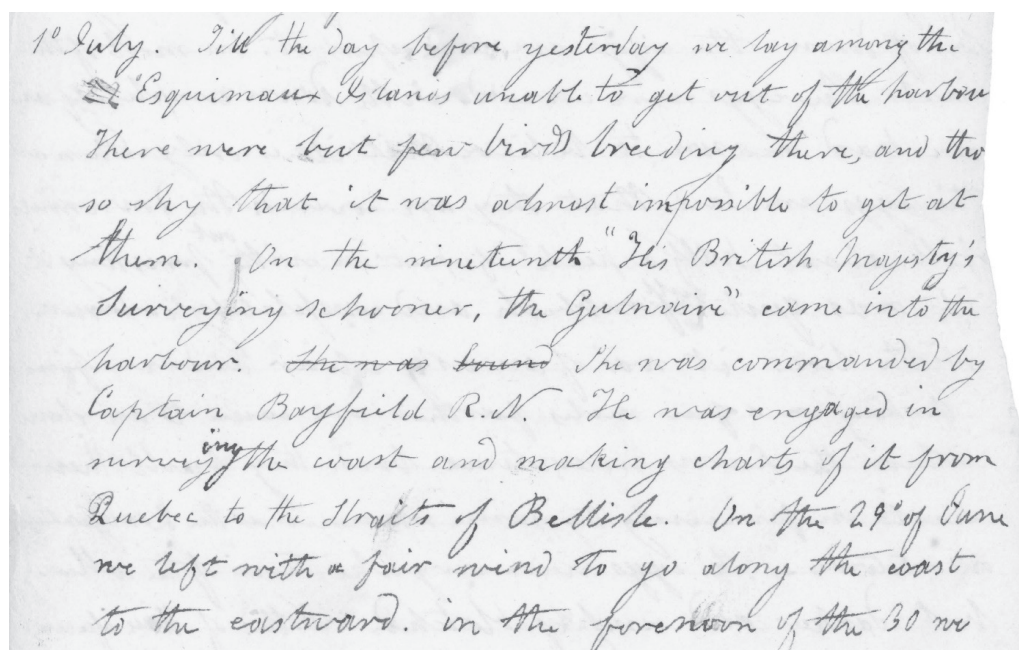 1º July. Till the day before yesterday we lay among the
"Esquimaux Islands unable to get out of the harbou
There were but few birds breeding there, and tho
so shy that it was almost impossible to get at
them. On the nineteenth "His British Majesty's
Surveying schooner, the Gulnaire" came into the
harbour. She was bound She was commanded by
Captain Bayfield R.N. He was engaged in
surveying the coast and making charts of it from
Quebec to the Straits of Bellisle. On the 29º of June
we left with a fair wind to go along the coast
to the eastward. in the forenoon of the 30 we